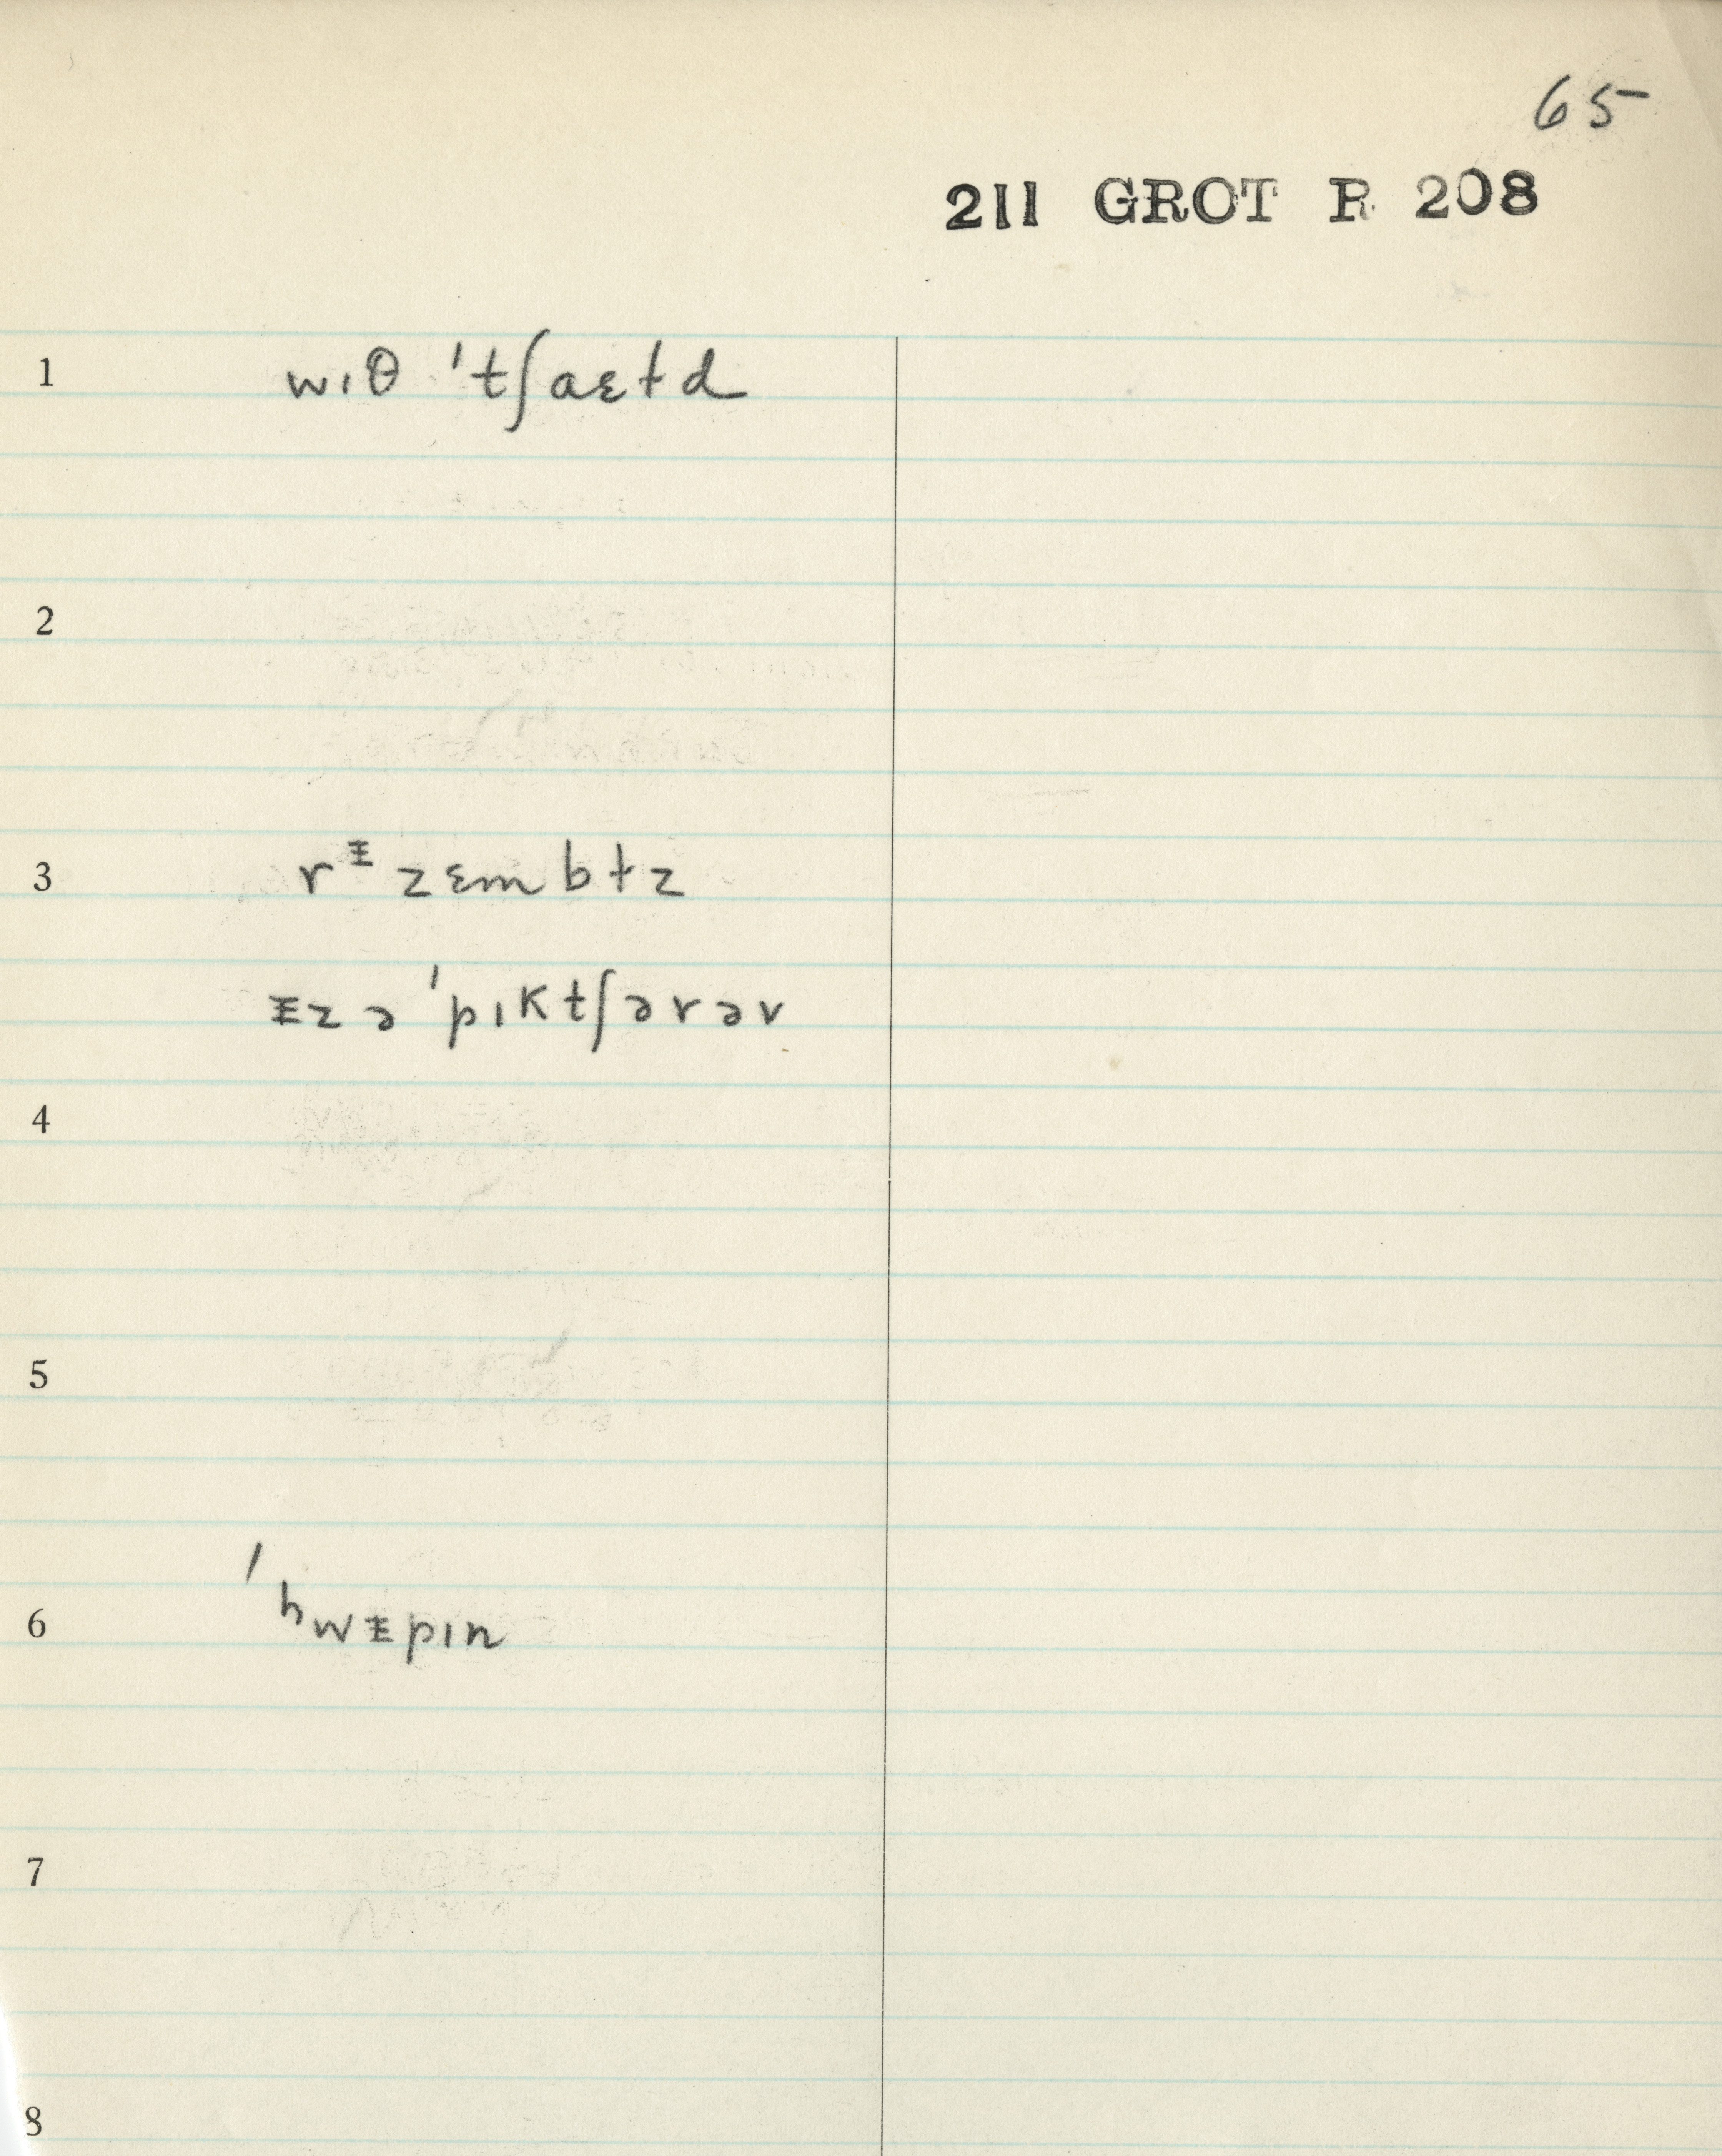 65
211 GROT R 208
1 wıθ ˈtʃaɛɫd
2
3 rᵻzɛmbɫz
ᵻz ə ˈpıktʃərəv
4
5
6 ˈʰwᵻpın
7
8